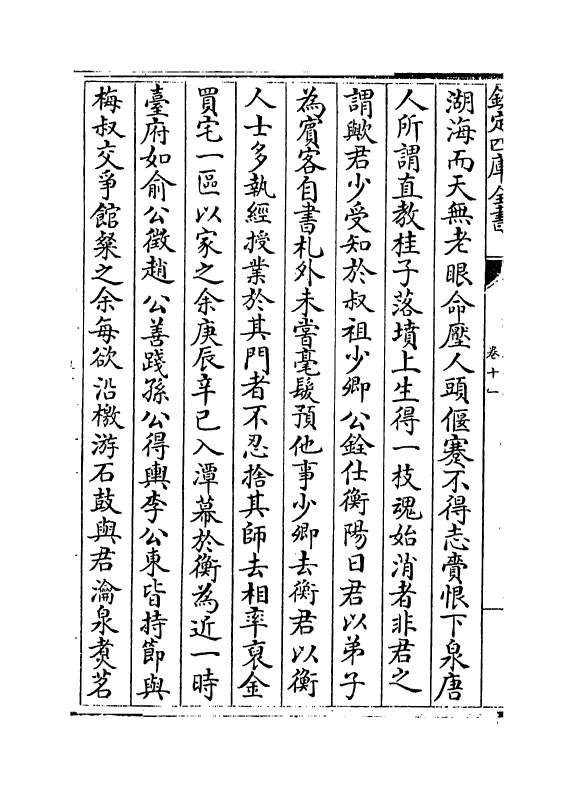 欽定四庫全書
卷十一
湖海而天無老眼命壓人頭偃蹇不得志賫恨下泉唐
人所謂直教桂子落墳上生得一枝魂始消者非君之
謂歟君少受知於叔祖少卿公銓仕衡陽日君以弟子
為賓客自書札外未嘗毫髪預他事少卿去衡君以衡
人士多執經授業於其門者不忍捨其師去相率裒金
買宅一區以家之余庚辰辛巳入潭幕於衡為近一時
臺府如俞公徵趙公善踐孫公得輿李公東皆持節與
梅叔交爭館粲之余每欲沿檄游石鼓與君瀹泉煑茗